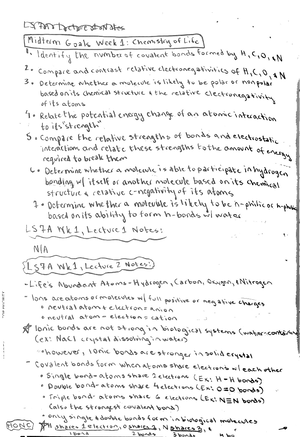 LS7A Lecture Notes
Midterm Goals Week 1: Chemistry of Life
1. Identify the number of covalent bonds formed by H, C, O, & N
2. Compare and contrast relative electronegativities of H, C, O, & N
3. Determine whether a molecule is likely to be polar or nonpolar
based on its chemical structure & the relative electronegativity
of its atoms
4. Relate the potential energy change of an atomic interaction
to its "strength"
5. Compare the relative strengths of bonds and electrostatic
interactions and relate these strengths to the amount of energy
required to break them
6. Determine whether a molecule is able to participate in hydrogen
bonding w/ itself or another molecule based on its chemical
structure & relative e-negativity of its atoms
7. Determine whether a molecule is likely to be h-philic or h-phobic
based on its ability to form h-bonds w/ water
LS7A Wk1, Lecture 1 Notes:
N/A
LS7A Wk1, Lecture 2 Notes:
- Life's Abundant Atoms - Hydrogen, Carbon, Oxygen, Nitrogen
- Ions are atoms or molecules w/ full positive or negative charges
• neutral atom + electron = anion
• neutral atom - electron = cation
Ionic bonds are not strong in biological systems (water-containing)
(ex: NaCl crystal dissolving in water)
→ however, ionic bonds are stronger in solid crystal
- Covalent bonds form when atoms share electrons w/ each other
• Single bond = atoms share 2 electrons (Ex: H-H bonds)
• Double bond = atoms share 4 electrons (Ex: O=O bonds)
• Triple bond = atoms share 6 electrons (Ex: N≡N bonds)
(also the strongest covalent bond)
• only single & double bonds form in biological molecules
HONC H shares 1 electron, O shares 2, N shares 3, &
1 bond 2 bonds 3 bonds